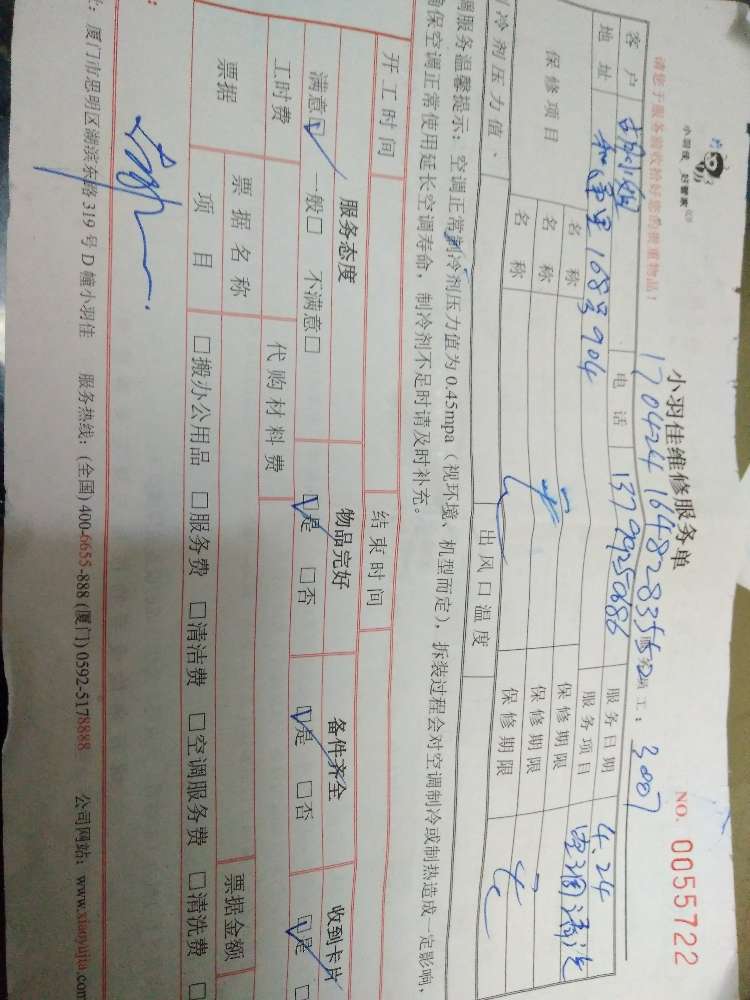 小羽佳 好管家
小羽佳维修服务单
NO. 0055722
请您于服务前收拾好您的贵重物品！
170424164828355
工：3007
客户 电话 13790250686 服务日期 4.24
地址 168号904 服务项目 空调清洗
保修项目 名称 保修期限
名称 保修期限
名称 保修期限
冷剂压力值、 出风口温度
调服务温馨提示：空调正常制冷剂压力值为0.45mpa（视环境、机型而定），拆装过程会对空调制冷或制热造成一定影响，
确保空调正常使用延长空调寿命，制冷剂不足时请及时补充。
开工时间 结束时间
服务态度 物品完好 备件齐全 收到卡片
满意☑ 一般□ 不满意□ ☑是 □否 ☑是 □否 ☑是
工时费 代购材料费
票据 票据名称 票据金额
项目 □搬办公用品 □服务费 □清洁费 □空调服务费 □清洗费 □
厦门市思明区湖滨东路319号D幢小羽佳 服务热线：(全国) 400-6655-888 (厦门) 0592-5178888 公司网站：www.xiaoyujia.com